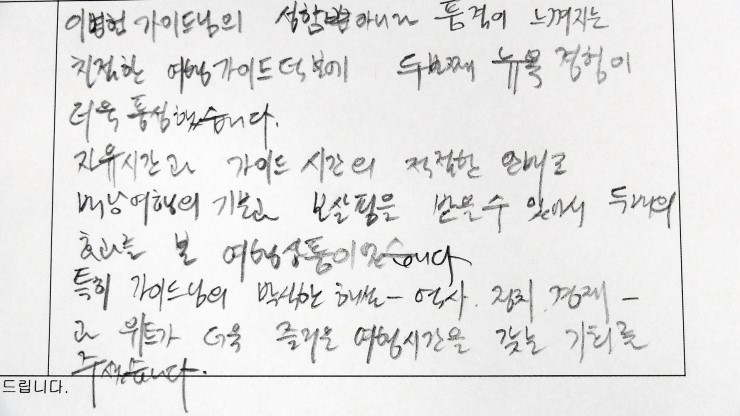 이병헌 가이드님의 성함뿐아니라 품격이 느껴지는
친절한 여행가이드덕분에 두번째 뉴욕 경험이
더욱 풍성했습니다.
자유시간과 가이드 시간의 적절한 안배로
배낭여행의 기분과 보살핌을 받을수 있어서 두배의
효과를 본 여행상품이었습니다
특히 가이드님의 박식한 해설- 역사. 정치. 경제 -
과 위트가 더욱 즐거운 여행시간을 갖는 기회를
주셨습니다.
드립니다.